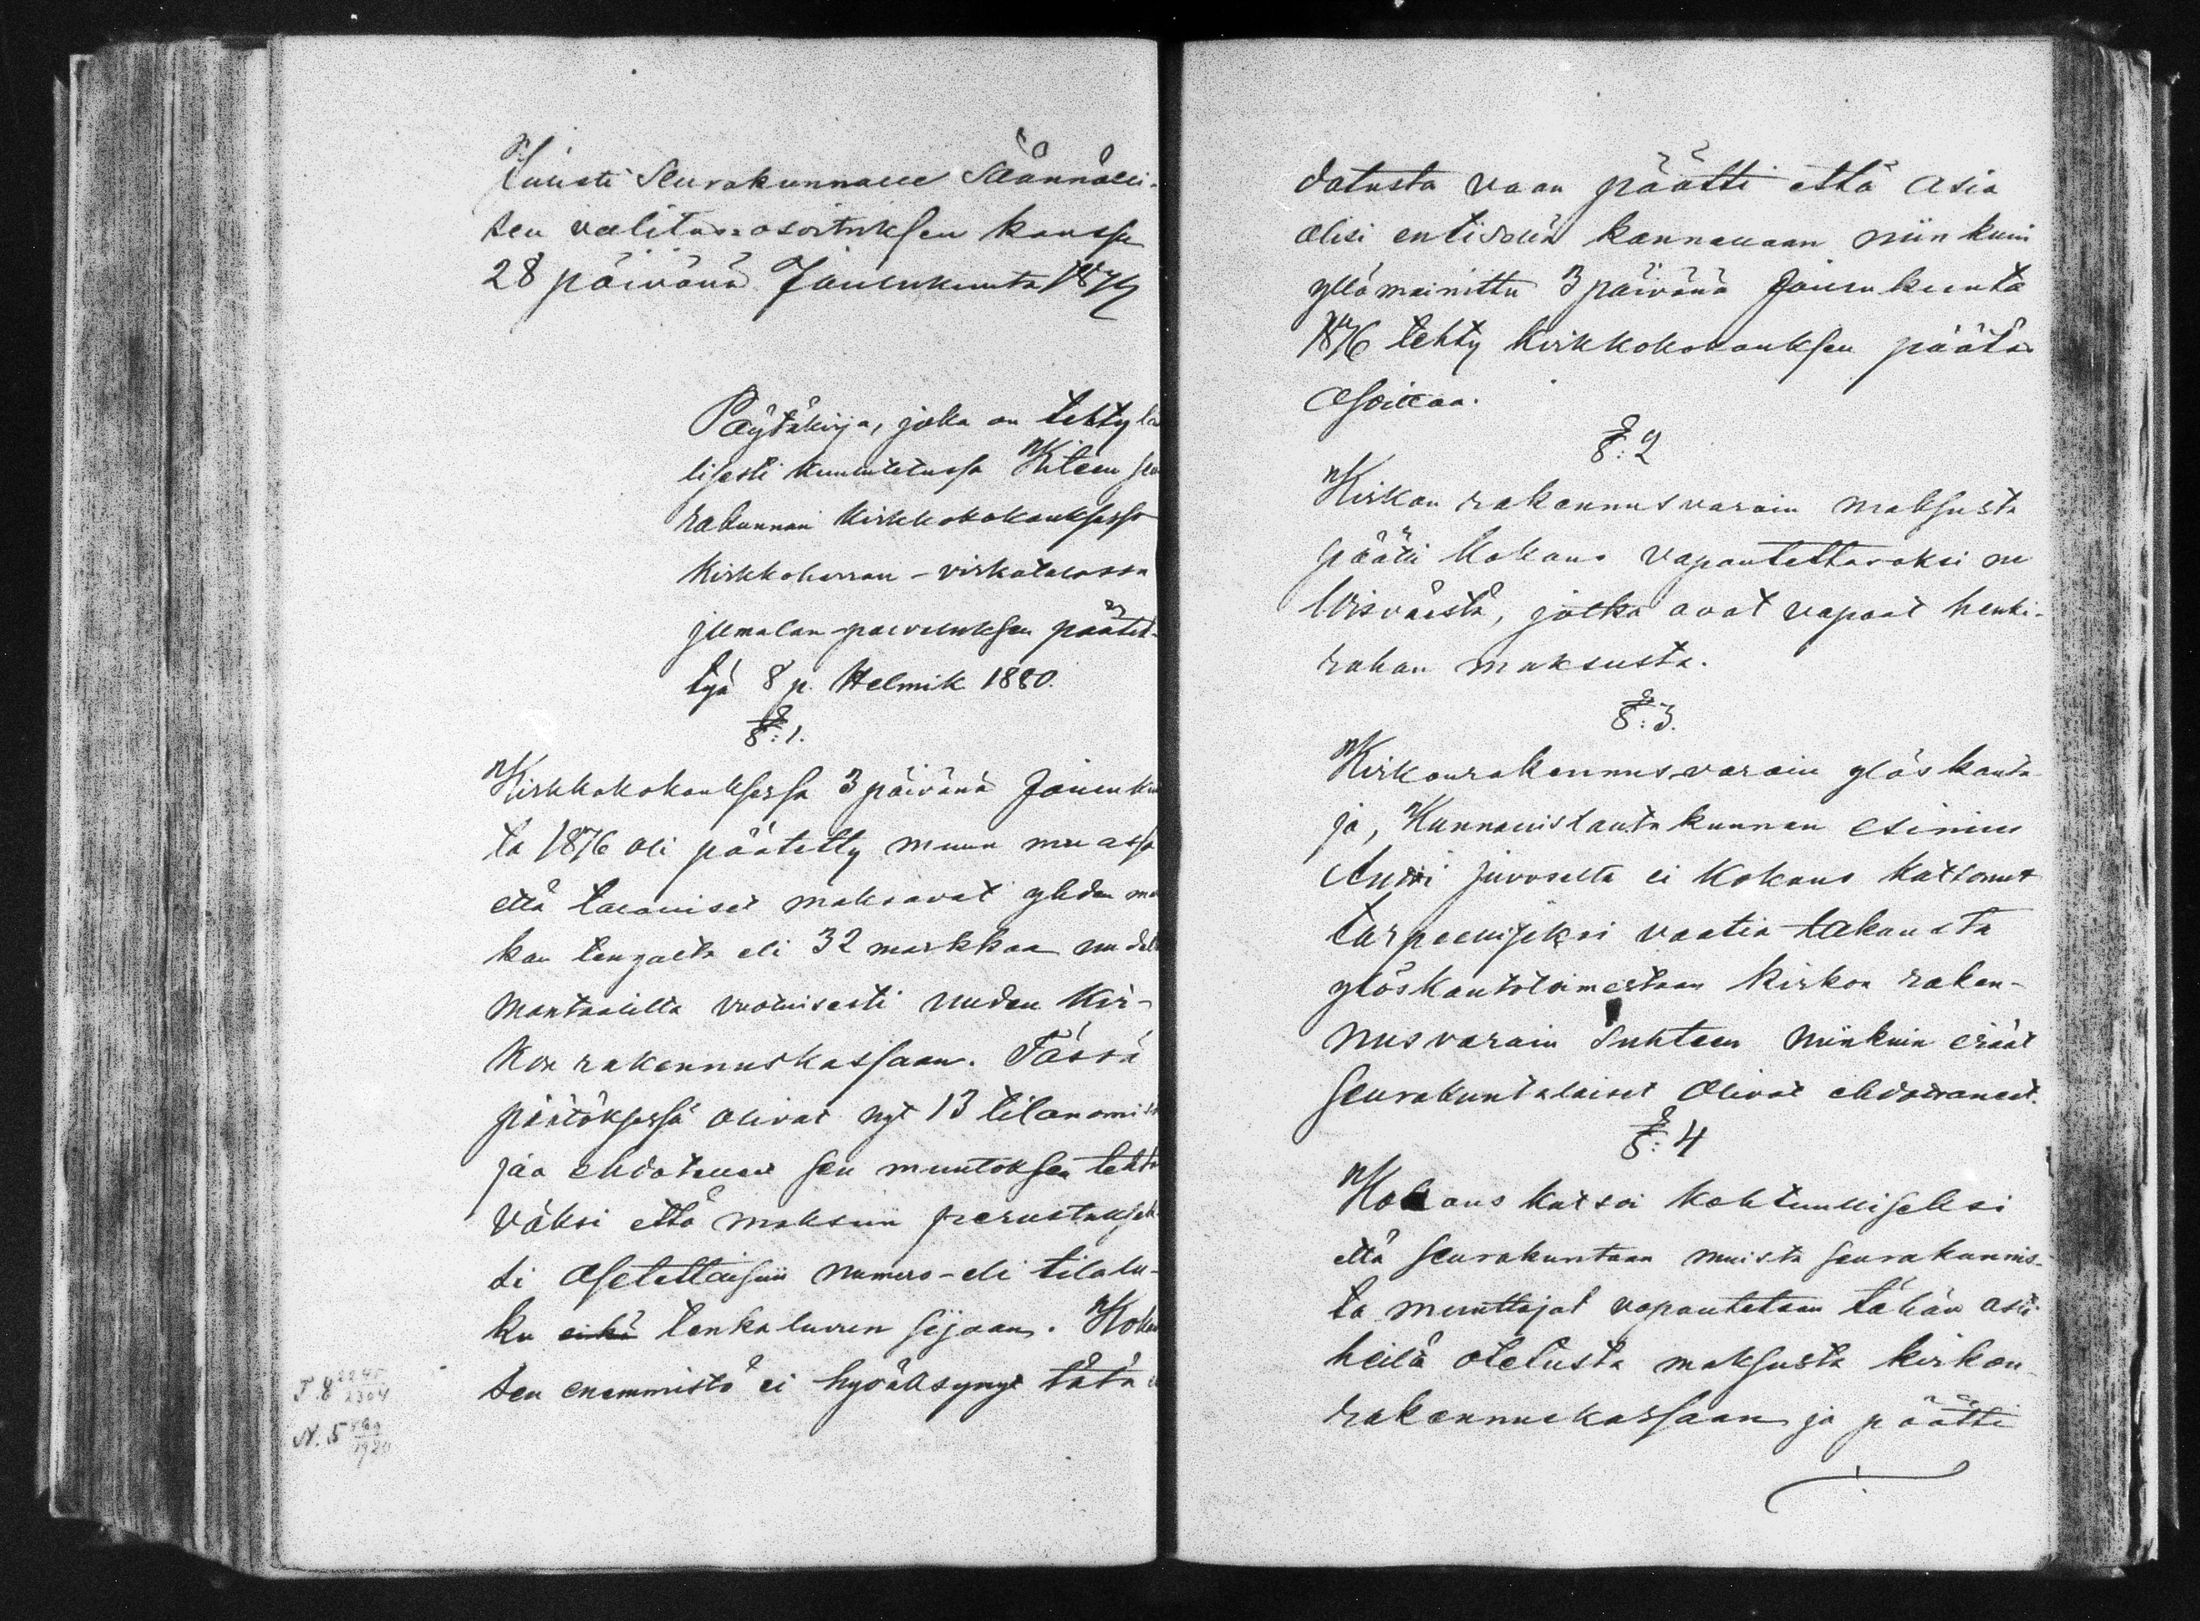 Luisti Seurakunnalle Säännölli-
sen valitus-osoituksen kanssa
28 päivänä Joulukuuta 1879
Pöytäkirja, joka on tehty lail
lisesti kuulutetussa Kiteen seu
rakunnan kirkkokokouksessa
kirkkoherran-virkatalossa
jumalan-palveluksen päätet-
tyä 8 p. Helmik 1880.
§: 1.
Kirkkokokouksessa 3 päivänä Jouluku
ta 1876 oli päätetty muun muassa
että talolliset maksavat yhden mar
kan tengalta eli 32 markkaa
mantaalilta vuotuisesti uuden kir-
kon rakennuskassaan. Tässä
päätöksessä olivat nyt 13 tilanomista
jaa ehdotelleet sen muutoksen tehtä
väksi että maksun perustukse
si asetettaisiin numero-eli tilalu-
ku eikä tenkaluvun sijaan. Kokou
sen enemmistö ei hyväksynyt tätä e
T. 8 2245
2304
N. 5
1920
dotusta vaan päätti että asia
olisi entisellä kannallaan niinkuin
yllämainittu 3 päivänä Joulukuuta
1876 tehty kirkkokokouksen päätös
osoittaa.
§: 2
Kirkon rakennusvarain maksusta
päätti kokous vapautettavaksi ne
läisväestä, jotka ovat vapaat henki-
rahan maksusta.
§: 3.
Kirkonrakennusvarain ylöskanta-
ja, Kunnallislautakunnan esimies
Antti Juvoselta ei kokous katsonut
tarpeelliseksi vaatia takausta
ylöskantotoimestaan kirkon raken-
nusvarain suhteen niinkuin eräät
seurakuntalaiset olivat ehdottaneet.
§: 4
Kokous katsoi kohtuulliseksi
että seurakuntaan muista seurakunnis-
ta muuttajat vapautetaan tähän asti
heiltä otetusta maksusta kirkon-
rakennuskassaan ja päätti